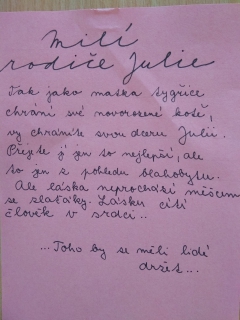 Milí
rodiče Julie
Tak jako matka tygřice
chrání své novorozené kotě,
vy chráníte svou dceru Julii.
Přejete jí jen to nejlepší, ale
to jen z pohledu blahobytu.
Ale láska neprochází měšcem
se zlaťáky. Lásku cítí
člověk v srdci..
...Toho by se měli lidé
držet...